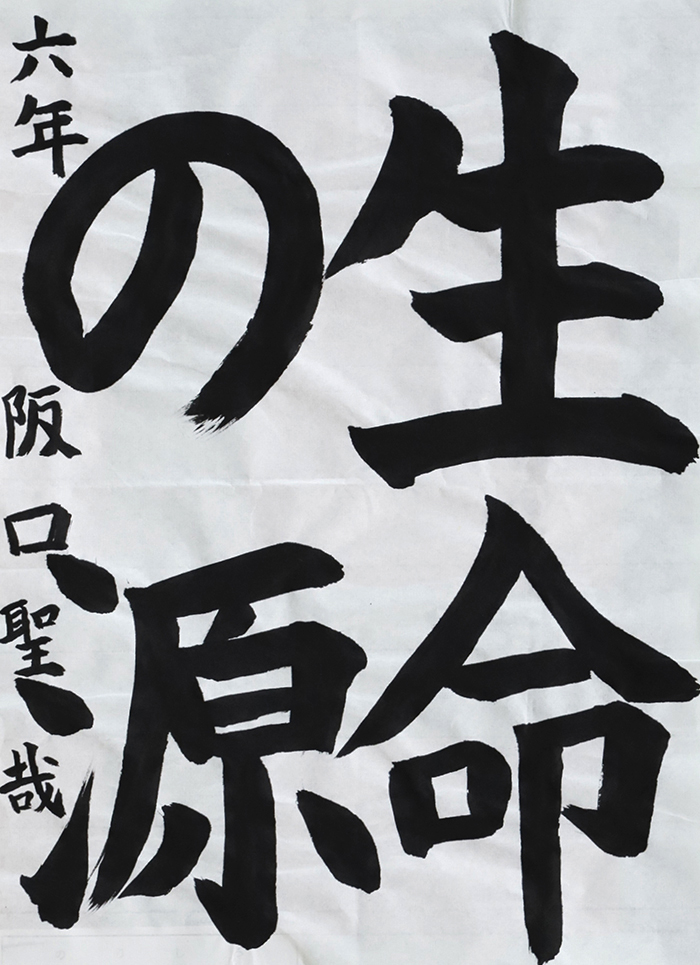 生命
の源
六年 阪口聖哉